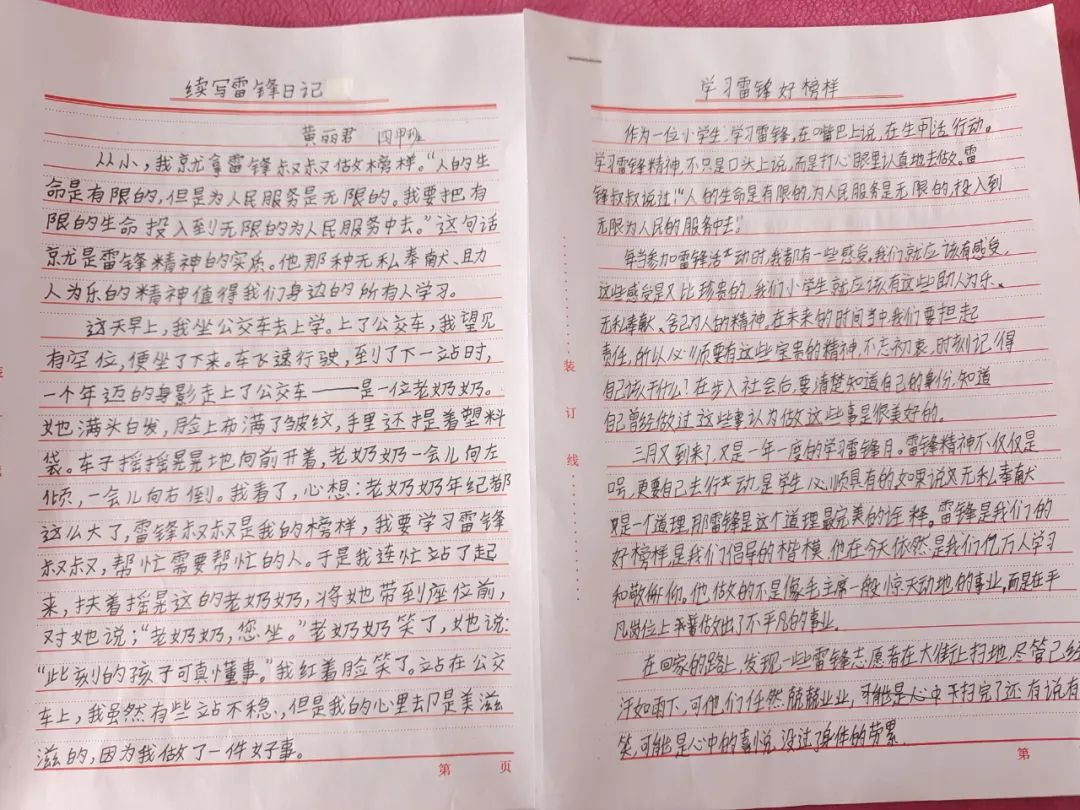 续写雷锋日记
黄丽君 四甲班
从小，我就拿雷锋叔叔做榜样。“人的生
命是有限的，但是为人民服务是无限的。我要把有
限的生命投入到无限的为人民服务中去。”这句话
就是雷锋精神的实质。他那种无私奉献、助
人为乐的精神值得我们身边的所有人学习。
这天早上，我坐公交车去上学。上了公交车，我望见
有空位，便坐了下来。车飞速行驶，到了下一站时，
一个年迈的身影走上了公交车——是一位老奶奶。
她满头白发，脸上布满了皱纹，手里还提着塑料
袋。车子摇摇晃晃地向前开着，老奶奶一会儿向左
倾，一会儿向右倒。我看了，心想：老奶奶年纪都
这么大了，雷锋叔叔是我的榜样，我要学习雷锋
叔叔，帮忙需要帮忙的人。于是我连忙站了起
来，扶着摇晃这的老奶奶，将她带到座位前，
对她说；“老奶奶，您坐。”老奶奶笑了，她说：
“此刻的孩子可真懂事。”我红着脸笑了。站在公交
车上，我虽然有些站不稳，但是我的心里却是美滋
滋的，因为我做了一件好事。
第 页
学习雷锋好榜样
作为一位小学生，学习雷锋，在嘴巴上说，在生活行动。
学习雷锋精神，不只是口头上说，而是打心眼里认真地去做。雷
锋叔叔说过：“人的生命是有限的，为人民服务是无限的，投入到
无限为人民的服务中去。”
每当参加雷锋活动时，我都有一些感受，我们就应该有感受，
这些感受是又比珍贵的，我们小学生就应该有这些助人为乐、
无私奉献、舍己为人的精神。在未来的时间当中我们要担起
责任，所以必须要有这些宝贵的精神，不忘初衷，时刻记得
自己该干什么？在步入社会后，要清楚知道自己的身份，知道
自己曾经做过这些事认为做这些事是很美好的。
三月又到来了，又是一年一度的学习雷锋月。雷锋精神不仅仅是
口号，更要自己去行动，是学生必须具有的如果说无私奉献
是一个道理，那雷锋是这个道理最完美的诠释。雷锋是我们的
好榜样，是我们倡导的楷模，他在今天依然是我们亿万人学习
和敬佩的。他做的不是像毛主席一般惊天动地的事业，而是在平
凡岗位上做出了不平凡的事业。
在回家的路上，发现一些雷锋志愿者在大街上扫地，尽管已经
汗如雨下，可他们任然兢兢业业，可能是心中 扫完了还有说有
笑，可能是心中的喜悦没过了身体的劳累
第
装
订
线